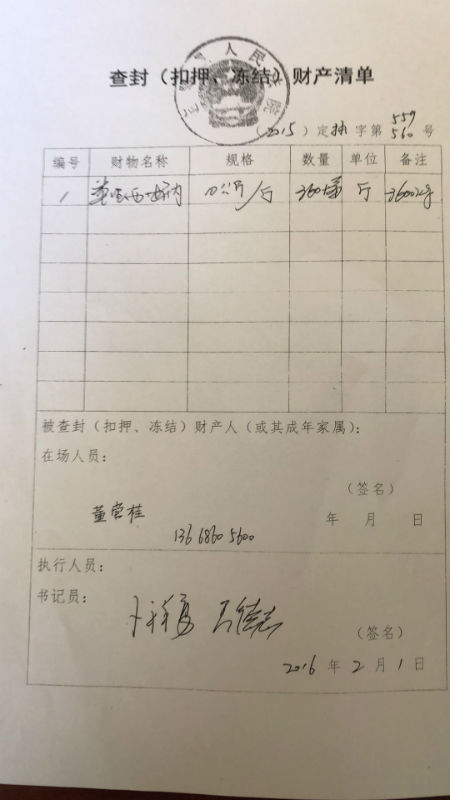 人民
查封（扣押、冻结）财产清单
（2015）定执字第 559 560 号
编号 财物名称 规格 数量 单位 备注
1 10公斤/斤 360 斤 3600
被查封（扣押、冻结）财产人（或其成年家属）：
在场人员：
（签名）
董常桂 年 月 日
136 6860 5600
执行人员：
书记员：
（签名）
2016 年 2 月 1 日